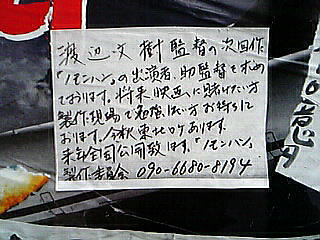 渡辺文樹監督の次回作
「ノモンハン」の出演者、助監督を求め
ております。将来映画に賭けたい方
製作現場で勉強したい方お待ちして
おります。今秋東北ロケあります。
来年全国公開致します。「ノモンハン」
製作委員会 090-6680-8194
億円